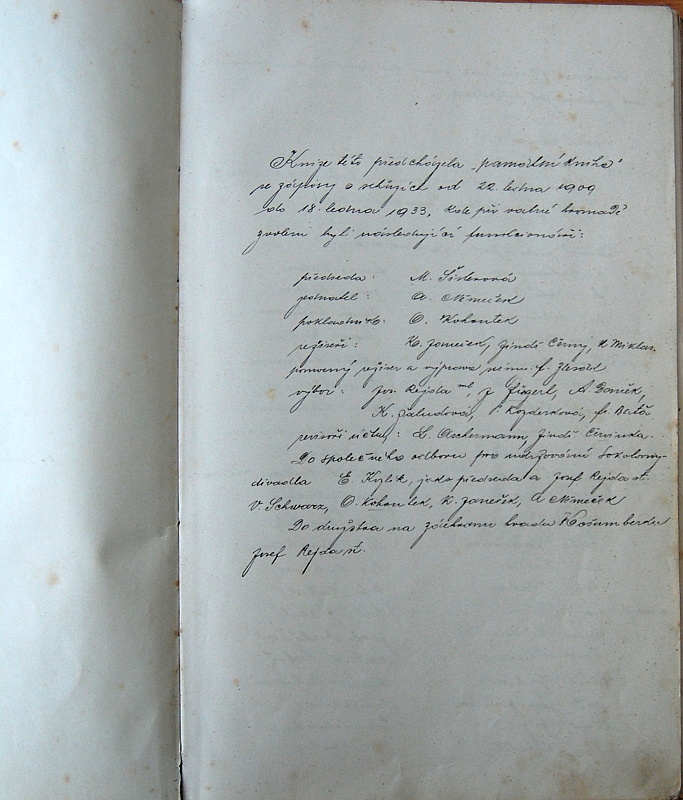 Knize této předcházela „památní kniha“
se zápisy o schůzích od 22. ledna 1909
do 18. ledna 1933, kde při valné hromadě
zvoleni byli následující funkcionáři:
předseda: M. Šislerová
jednatel: A. Němeček
pokladník: O. Kohoutek
režiseři: K. Janeček, Jindř. Černý, K. Miklas.
pomocný režiser a výprava
výbor: Jos. Rejda ml., J. Figerl, A. Daněk,
K. Žaludová, Kozderková, Fr. Bartá
revisoři účtů: L. Aschermann, Jindř. Červinka.
Do společného odboru pro udržování Sokolovny-
divadla E. Kozlík, jako předseda a Josef Rejda st.
V. Schwarz, O. Kohoutek, K. Janeček, A Němeček
Do družstva na záchranu hradu Košumberku
Josef Rejda st.